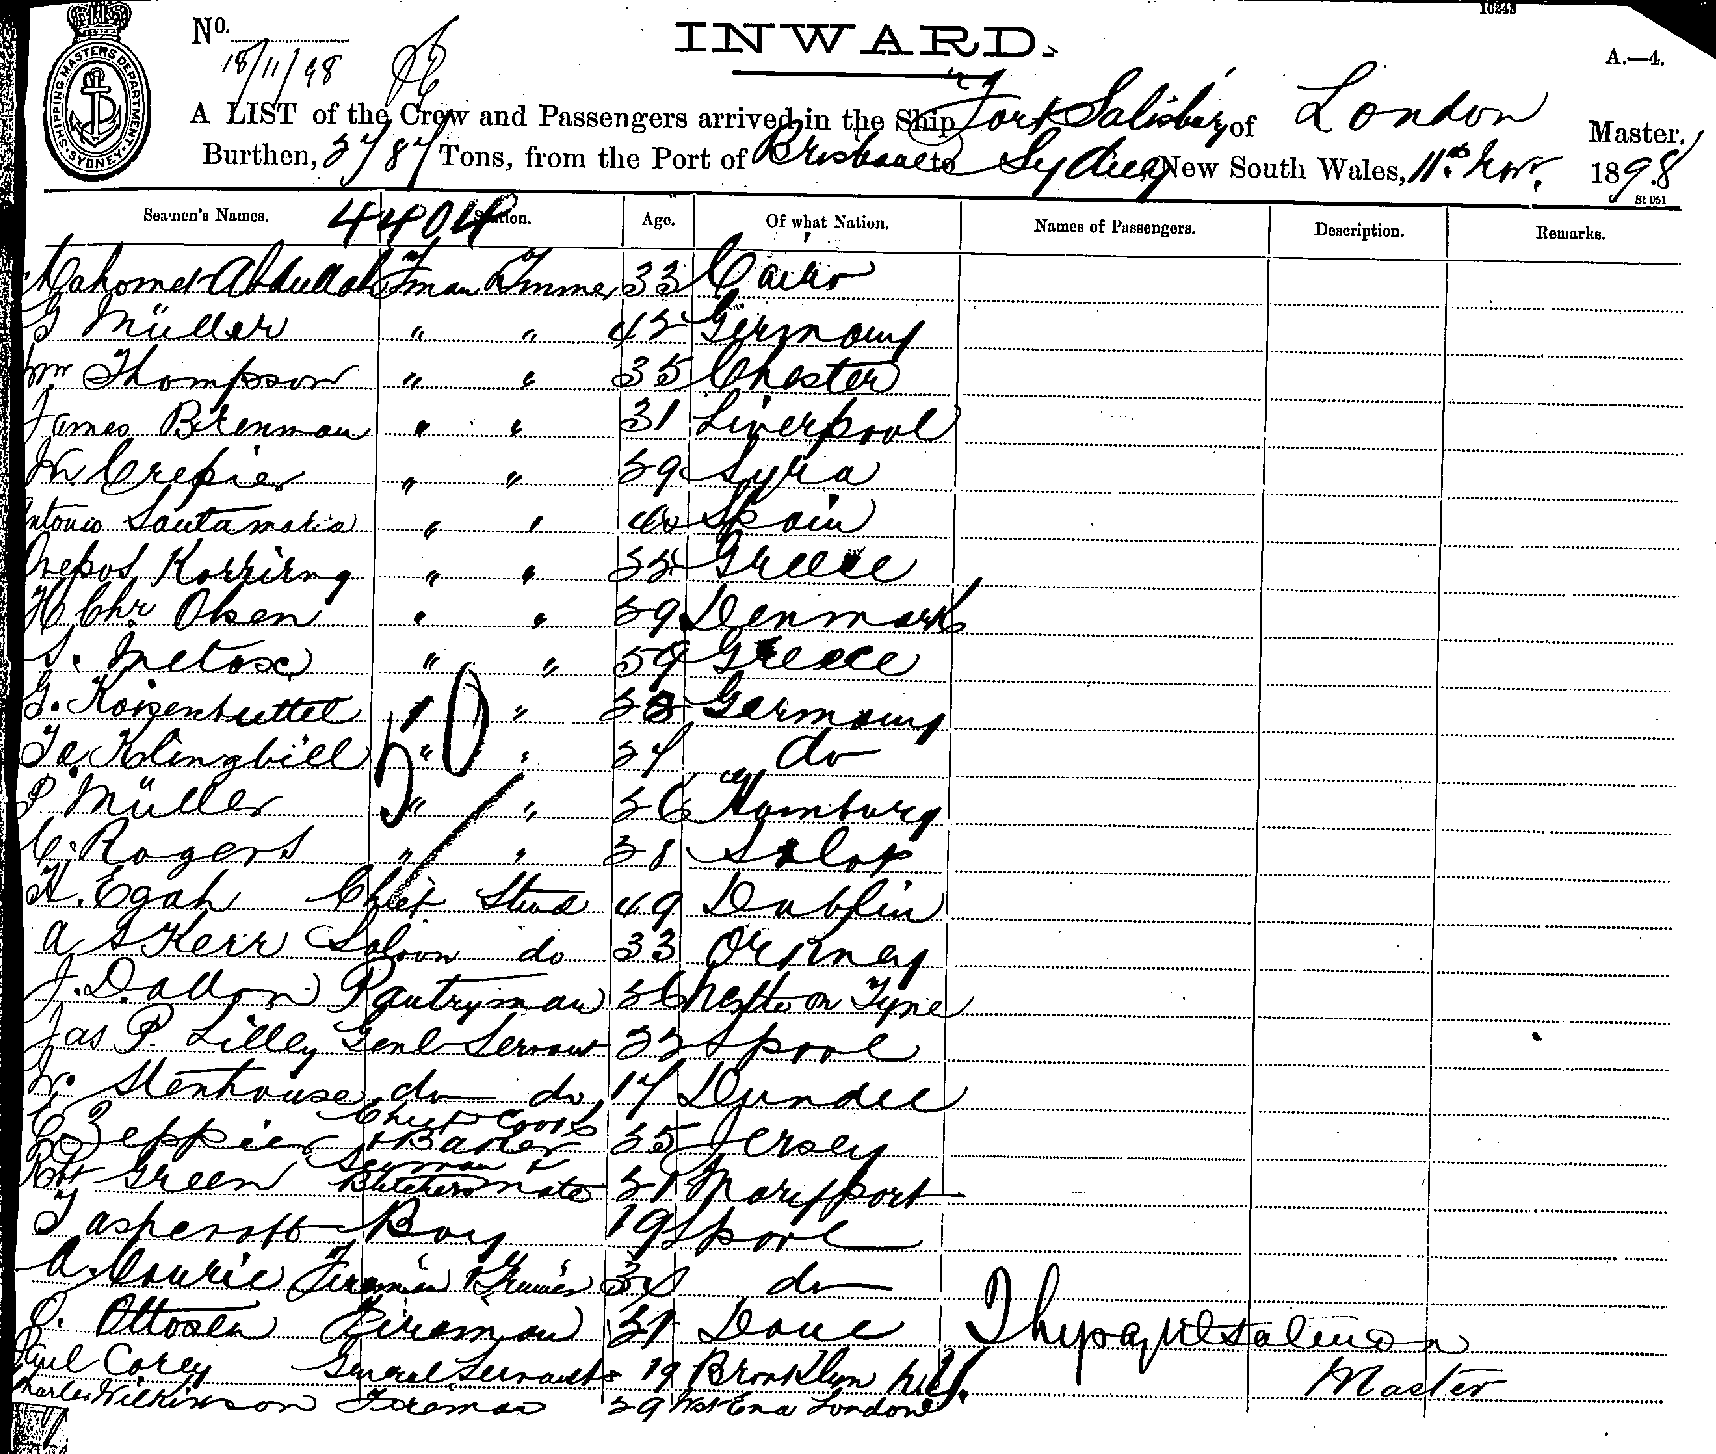 10243
No.
18/11/98
INWARD.
A.—4.
SHIPPING MASTERS DEPARTMENT SYDNEY
A LIST of the Crew and Passengers arrived in the Ship Fort Salisbury of London Master.
Burthen, Tons, from the Port of Brisbane to Sydney New South Wales, 11th Novr. 1898
St 051
Seamen's Names. Station. Age. Of what Nation. Names of Passengers. Description. Remarks.
4404
Mahomed Abdullah F'man & T'mmer 33 Cairo
G Müller " " 42 Germany
Wm Thompson " " 35 Chester
James Brennan " " 31 Liverpool
W Crepier " " 29 Syra
Antonio Santamaria " " 40 Spain
Korrirng " " Greece
H Chr. Olsen " " 29 Denmark
S. Metoxe " " 59 Greece
G. Koizenbuttel " " Germany
Fe. Klingbill " " 24 do
P Müller " " 26 Hamburg
C. Rogers " " Salop
H. Egan Chief Stwd 49 Dublin
A S Kerr Saloon do 33 Orkney
J. Dallon Pantryman 26 on Tyne
Jas P. Lilley Genl Servant L'pool
W. Stenhouse do do 17 Dundee
C. Zeppier Chief Cook & Baker 35 Jersey
Rbt Green Butchers Mate Maryport
T Ashcroft Boy 19 L'pool
A. Courie Fireman & Trimmer do
O. Ottosen Fireman Dane
Paul Corey General Servant 19 Brooklyn N.Y.
Charles Wilkinson Fireman 29 West End London
Master